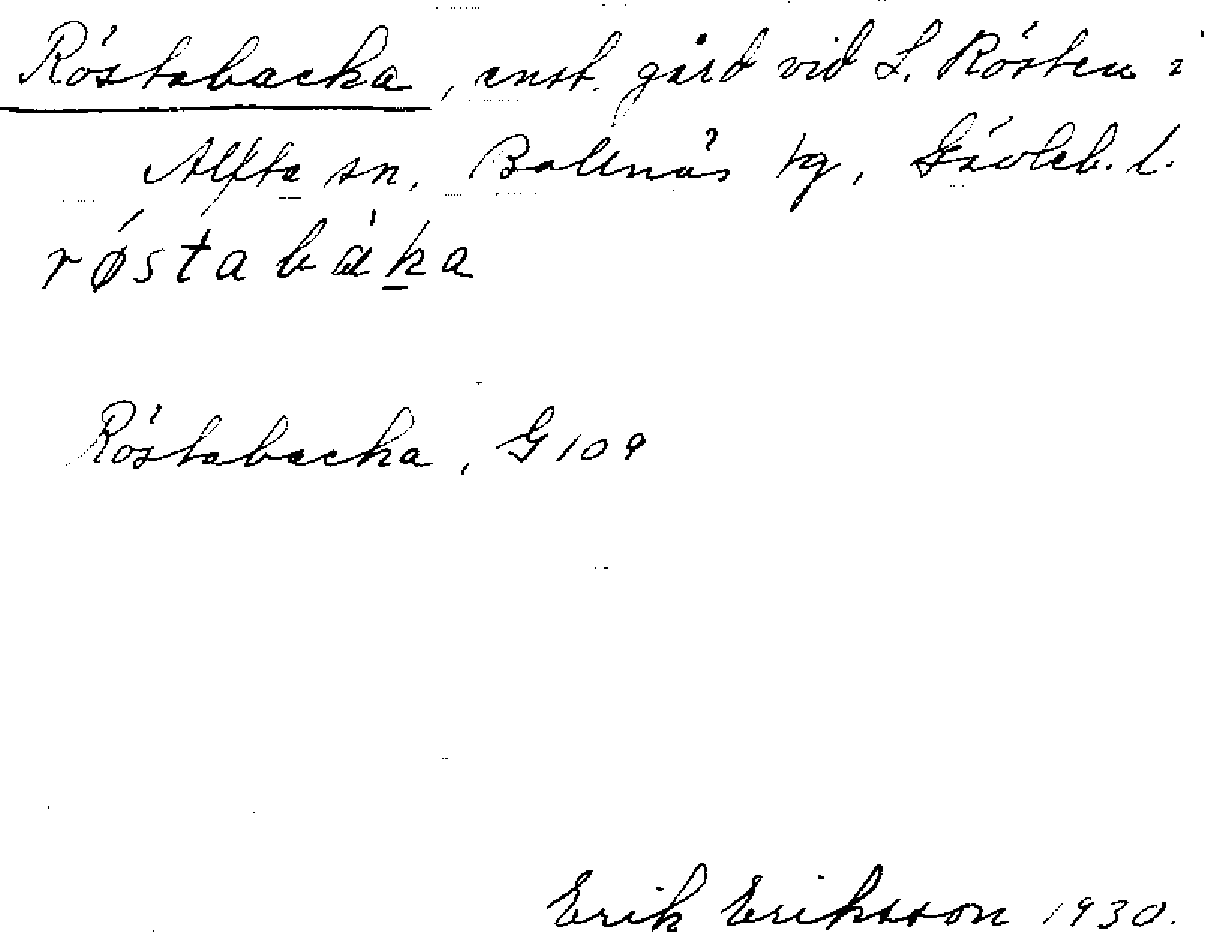 Röstabacka, enst. gård vid L. Rösten i
Alfta sn, Bollnäs tg, Gävleb. l.
røstabàka
Röstabacka, G 109
Erik Eriksson 1930.